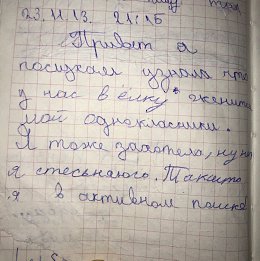 23.11.13. 21:15
Привет я
посидкам узнала что
у нас в ёлку женит
мои однокласники.
Я тоже захотела, но
я стесьнаюс. Так что
я в активном поиске